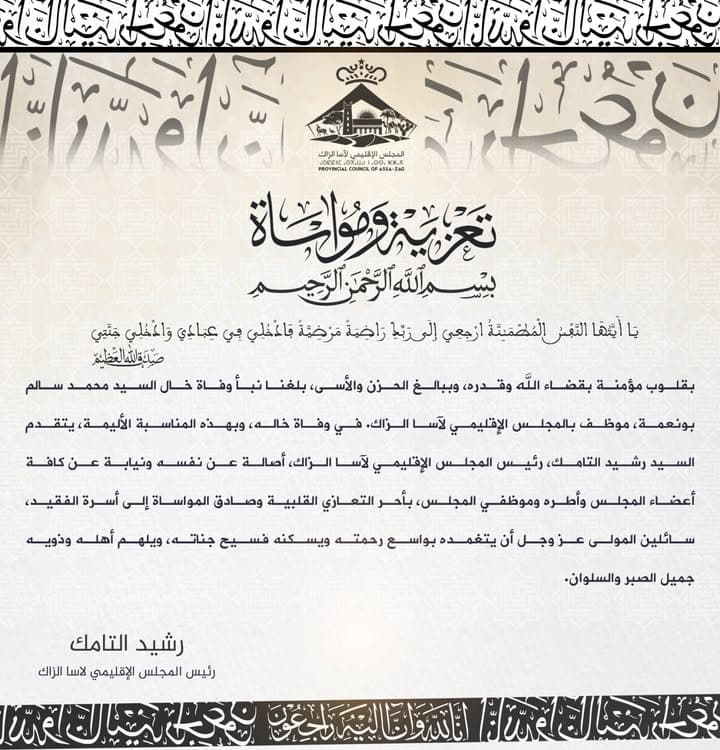 المجلس الإقليمي لآسا الزاك
PROVINCIAL COUNCIL OF ASSA-ZAG
تعزية ومواساة
بسم الله الرحمن الرحيم
يَا أَيَّتُهَا النَّفْسُ الْمُطْمَئِنَّةُ ارْجِعِي إِلَى رَبِّكِ رَاضِيَةً مَرْضِيَّةً فَادْخُلِي فِي عِبَادِي وَادْخُلِي جَنَّتِي
صدق الله العظيم
بقلوب مؤمنة بقضاء الله وقدره، وببالغ الحزن والأسى، بلغنا نبأ وفاة خال السيد محمد سالم
بونعمة، موظف بالمجلس الإقليمي لآسا الزاك. في وفاة خاله، وبهذه المناسبة الأليمة، يتقدم
السيد رشيد التامك، رئيس المجلس الإقليمي لآسا الزاك، أصالة عن نفسه ونيابة عن كافة
أعضاء المجلس وأطره وموظفي المجلس، بأحر التعازي القلبية وصادق المواساة إلى أسرة الفقيد،
سائلين المولى عز وجل أن يتغمده بواسع رحمته ويسكنه فسيح جناته، ويلهم أهله وذويه
جميل الصبر والسلوان.
رشيد التامك
رئيس المجلس الإقليمي لاسا الزاك
إنا لله وإنا إليه راجعون